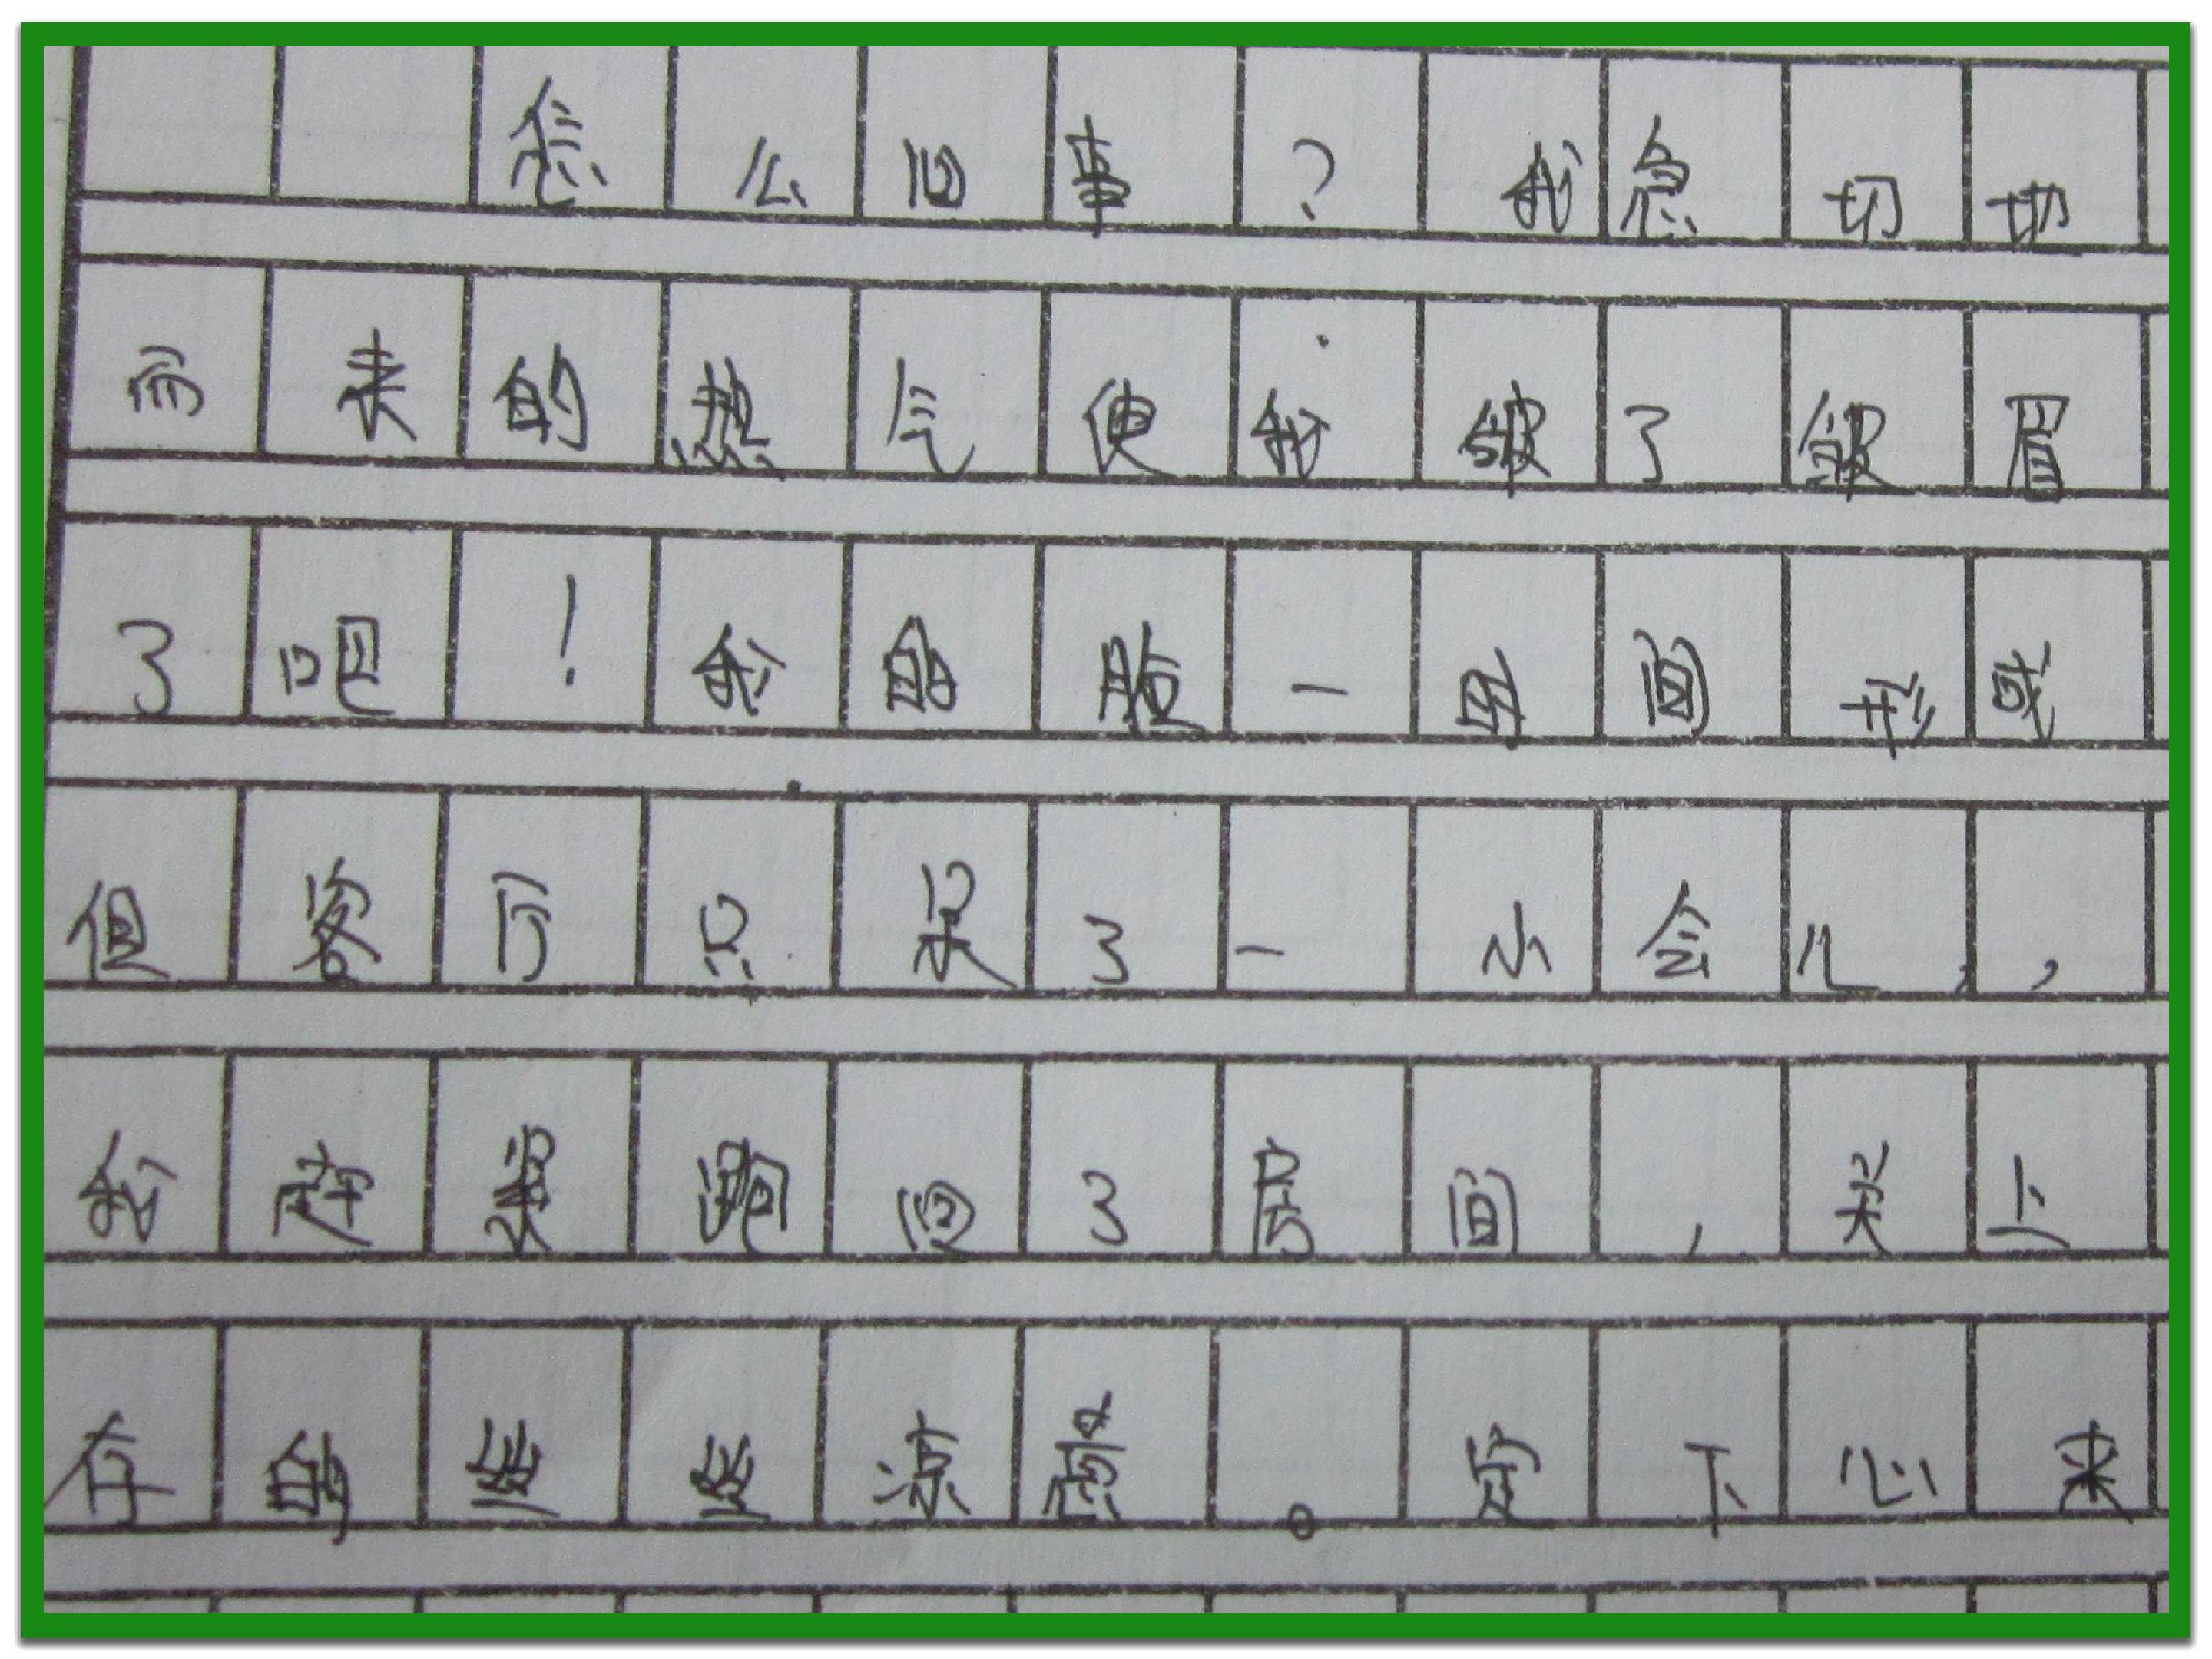 怎么回事？我急切地
而来的热气使我皱了皱眉
了吧！我的脸一时间形成
但客厅只呆了一小会儿，
我赶紧跑回了房间，关上
存的丝丝凉意。定下心来